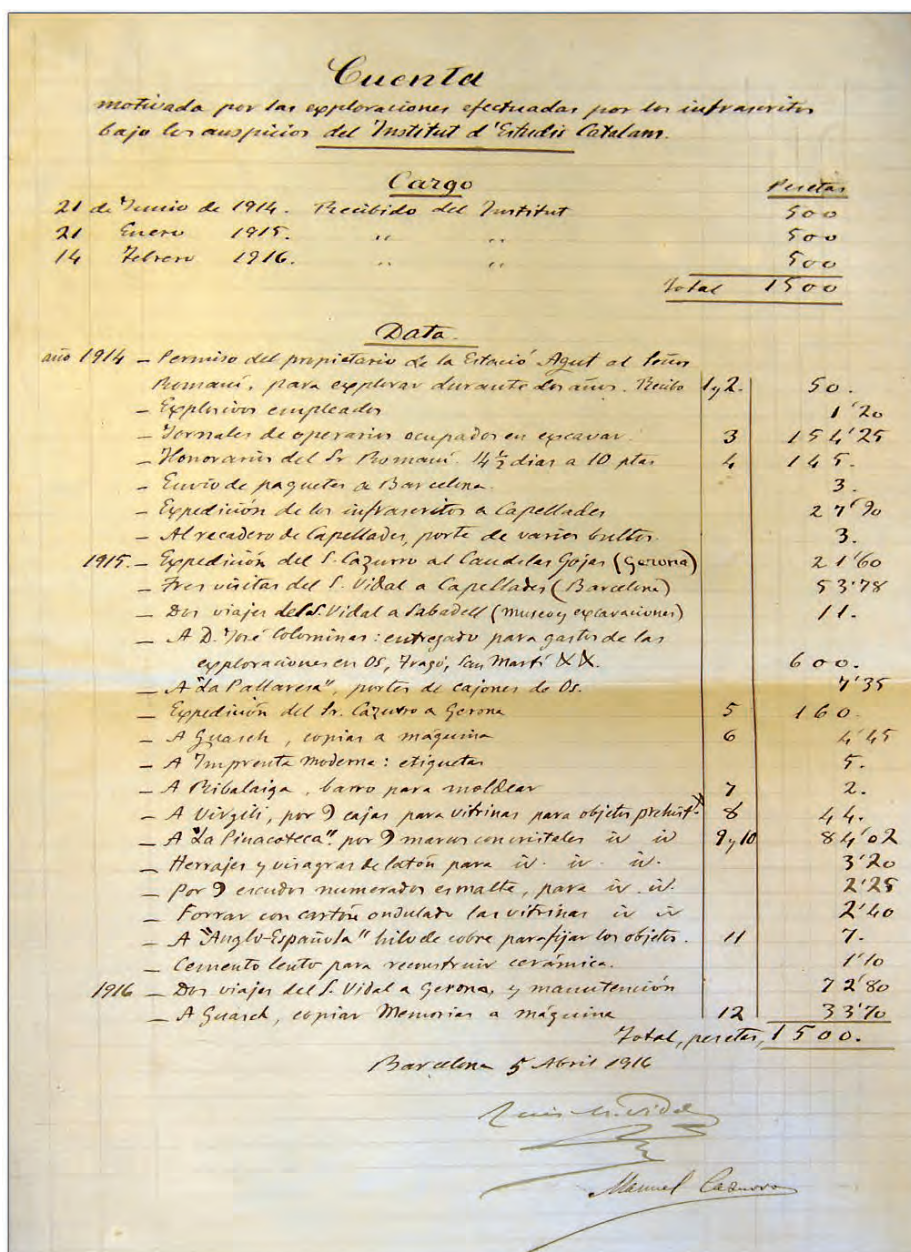 Cuenta
motivada por las exploraciones efectuadas por los infrascritos
bajo los auspicios del Institut d'Estudis Catalans.
Cargo Pesetas
21 de Junio de 1914. Recibido del Institut 500
21 Enero 1915. " " 500
14 Febrero 1916. " " 500
Total 1500
Data.
año 1914 – Permiso del propietario de la Estació Agut al Señor
Romaní, para explorar durante dos años. Recibo 1 y 2. 50.
– Explosivos empleados 1'20
– Jornales de operarios ocupados en excavar 3 154'25
– Honorarios del Sr Romaní. 14½ dias a 10 ptas 4 145.
– Envio de paquetes a Barcelona. 3.
– Expedición de los infrascritos a Capellades 27'90
– Al recadero de Capellades, porte de varios bultos. 3.
1915. – Expedición del S. Cazurro al Cau de las Gojas (Gerona) 21'60
– Tres visitas del S. Vidal a Capellades (Barcelona) 53'78
– Dos viajes del S. Vidal a Sabadell (museo y excavaciones) 11.
– A D. José Colominas: entregado para gastos de las
exploraciones en Os, Tragó, San Martí &&. 600.
– A "La Pallaresa", portes de cajones de Os. 7'35
– Expedición del Sr. Cazurro a Gerona 5 160.
– A Guasch, copias a maquina 6 4'45
– A Imprenta moderna: etiquetas 5.
– A Ribalaiga, barro para moldear 7 2.
– A Virgili, por 9 cajas para vitrinas para objetos prehist.s 8 44.
– A "La Pinacoteca" por 9 marcos con cristales id id 9 y 10 84'02
– Herrajes y visagras de latón para id. id. id. 3'20
– Por 9 escudos numerados esmalte, para id. id. 2'25
– Forrar con cartón ondulado las vitrinas id id 2'40
– A "Anglo-Española" hilo de cobre para fijar los objetos. 11 7.
– Cemento lento para reconstruir cerámica. 1'10
1916 – Dos viajes del S. Vidal a Gerona, y manutención 72'80
– A Guasch, copiar Memorias a máquina 12 33'70
Total, pesetas, 1500.
Barcelona 5 Abril 1916
Luis M. Vidal
Manuel Cazurro